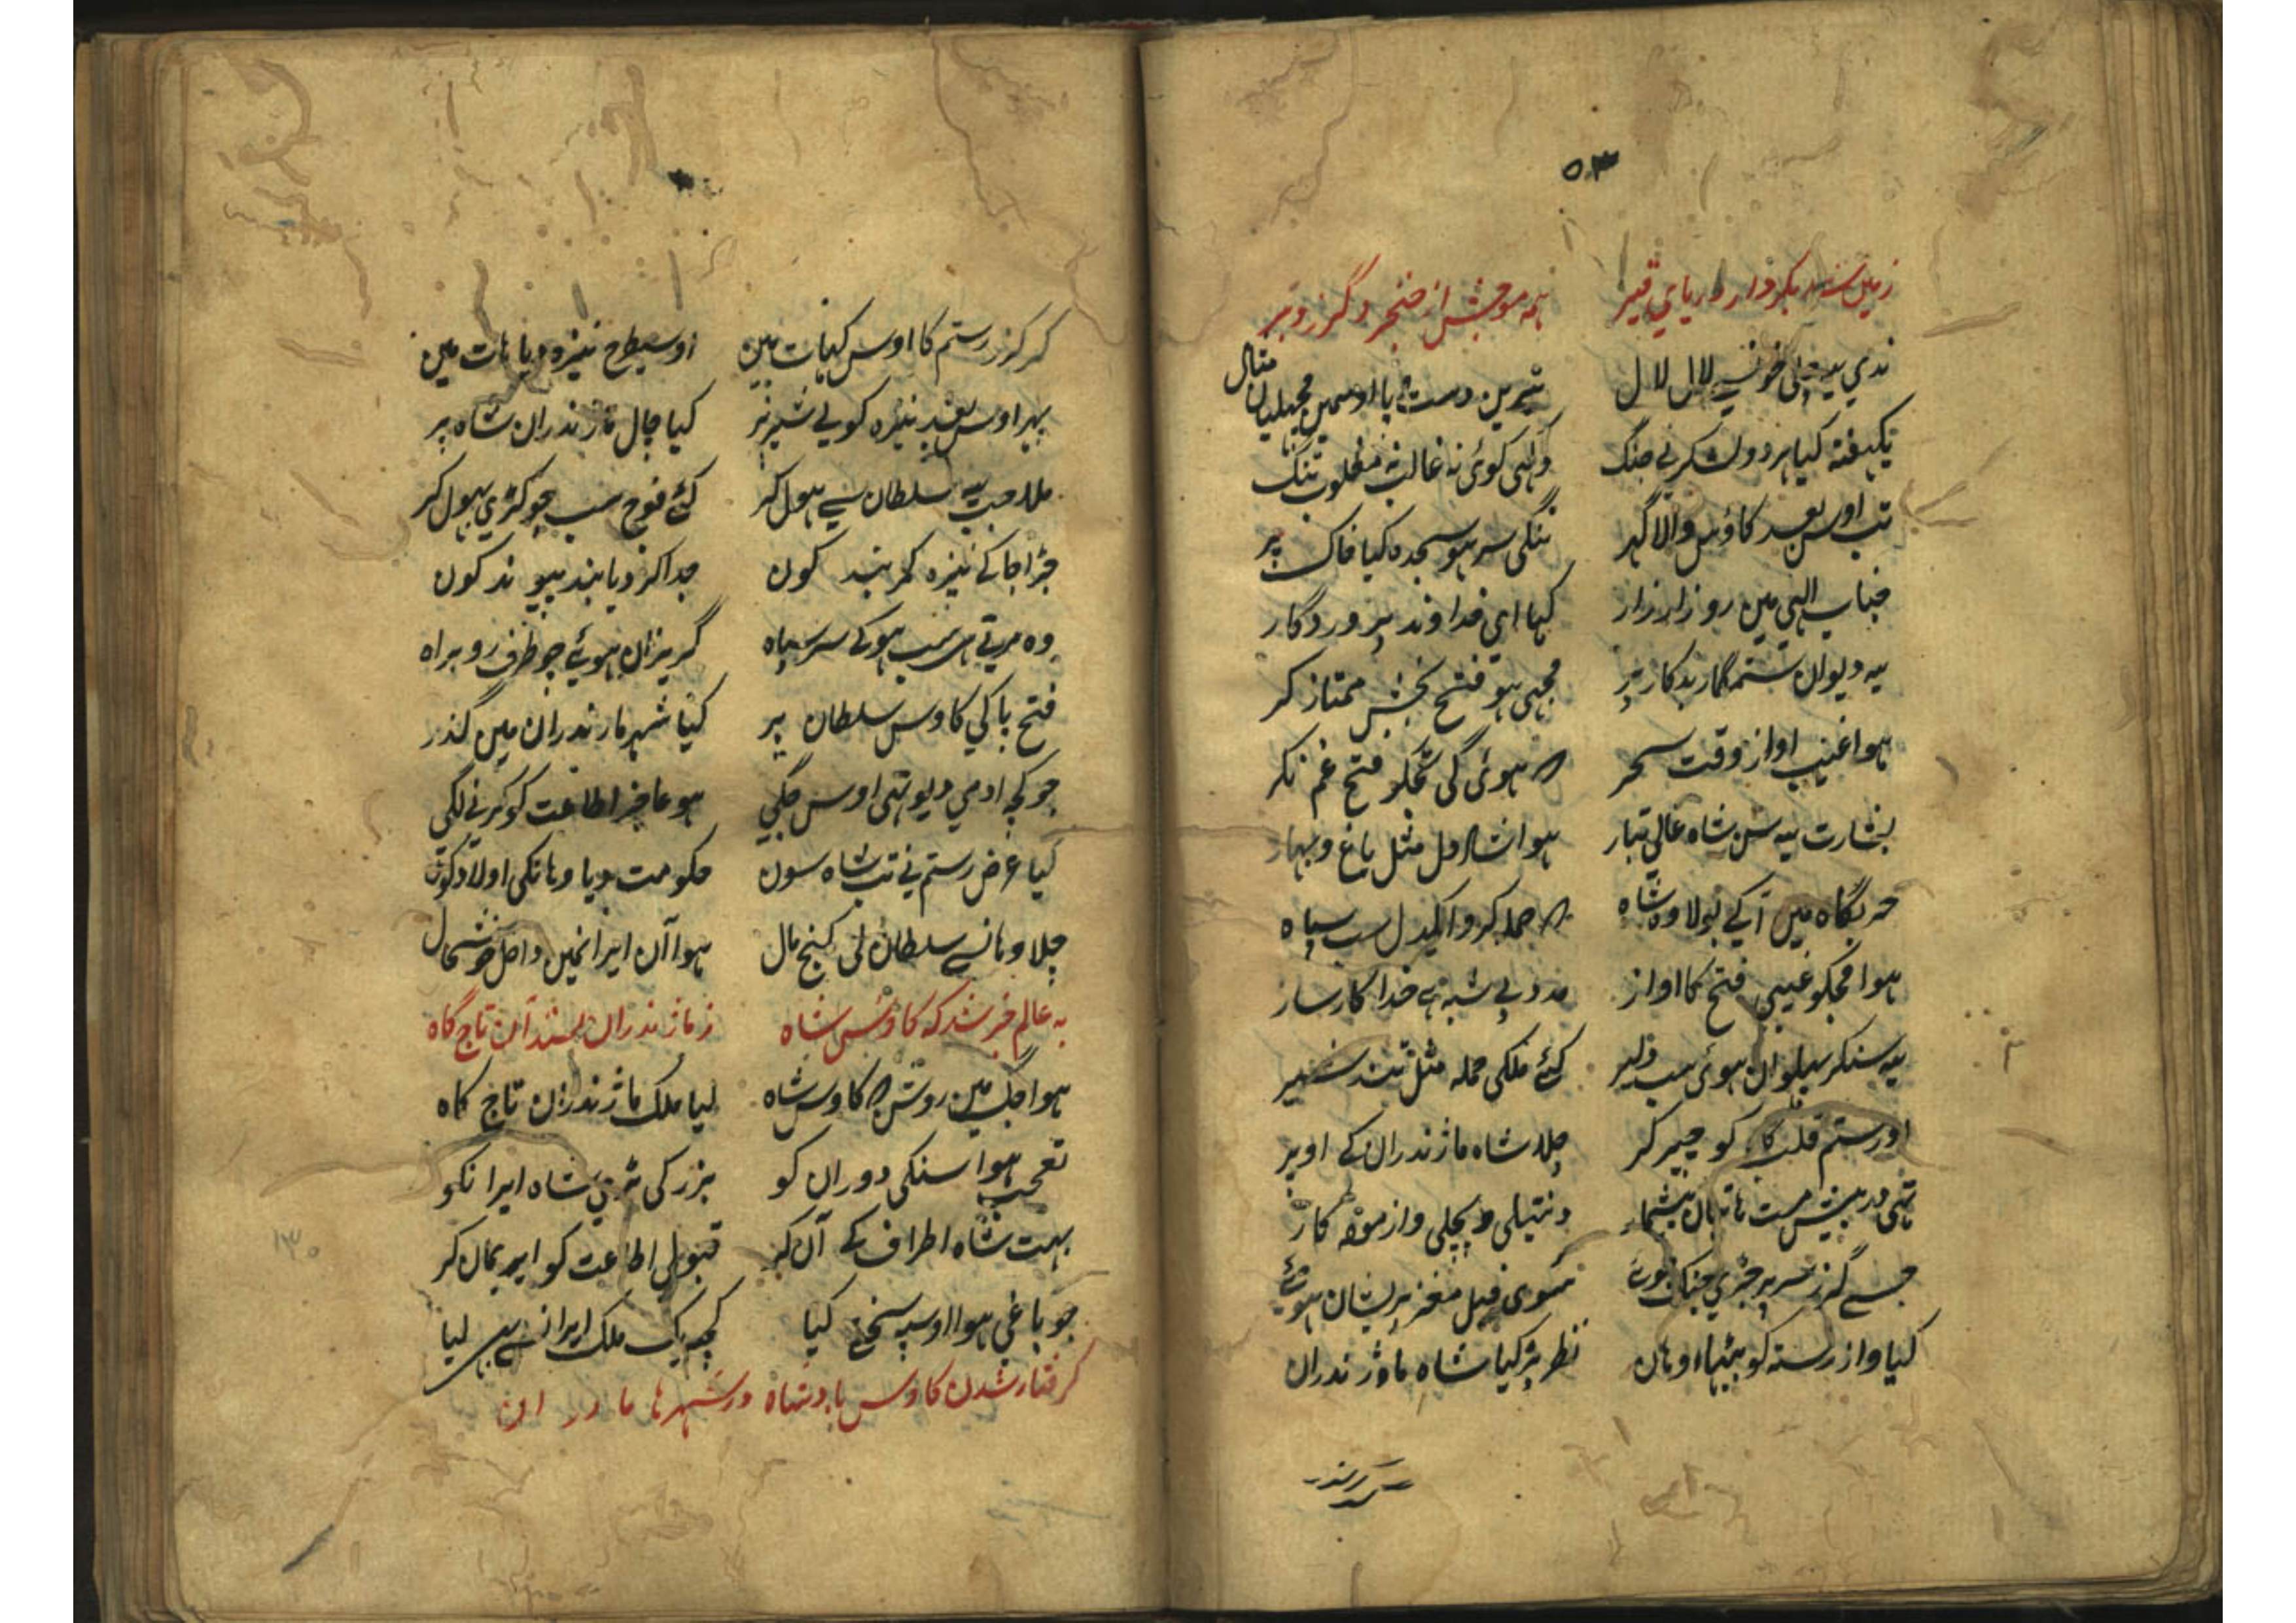 زمین شد بکردار دریای قیر ہمہ موجش از خنجر و گرز و تیر
ندی یہ چلی خونسے لال لال تیرین دست و پا اوسمین مچھلیان مثال
یکہفتہ کیا ہر دو لشکر نے جنگ ولی کوئی نہ غالب نہ مغلوب تنگ
تب اوس بعد کاؤس والا گہر ننگی سر ہو سجدہ کیا خاک پر
جناب الہی مین رو زار زار کہا ای خداوند پروردگار
یہ دیوان ستمگار بدکار پر مجہی ہو فتح بخش ممتاز کر
ہوا غیب اواز وقت سحر ہوئی گی تجکو فتح غم نکر
بشارت یہ سن شاہ عالی تبار ہوا شاد دل مثل باغ و بہار
حربگاہ مین آکے بولا وہ شاہ حملہ کرو ایکدل سب سپاہ
ہوا مجکو غیبی فتح کا اواز مدد بے شبہ ہے خدا کارساز
یہ سنکر پہلوان ہوئی سب دلیر کئے ملکی حملہ مثل تند شیر
اور رستم قلب گاہ کو چیر کر چلا شاہ ماژندران کے اوپر
تہی در پیش مست ہاتیان بیشمار
جسے گرز سر پر جڑی سوی فیل مغز پریشان ہوئے
کیا واز رستہ کو پہنچا وہان نظر پڑ کیا شاہ ماژندران
کر کرز رستم کا اوس کہات مین اوسیطرح نیزہ دیا ہات مین
پہر اوس بعد نیزہ کو بے شیر نر کیا چال ماژندران شاہ پر
ملا جب یہ سلطان سے ہول کر گئے فوج سب چوکڑی بہول کر
جڑا جاکے نیزہ کمر بند کون جدا کر دیا بند پیوند کون
وہ مرتے ہی سب ہوکے سر سپاہ گریزان ہوئے چو طرف رو براہ
فتح پاکی کاوس سلطان پر کیا شہر مازندران مین گذر
جو کچہ ادمی دیو تہی اوس جگی ہو عاجز اطاعت کو کرنے لگی
کیا عرض رستم نے تب شاہ سون حکومت دیا وہانکی اولاد کون
چلا وہانسے سلطان لی گنج مال ہوا آن ایرانمین داخل خوشحال
بہ عالم خبر شد کہ کاؤس شاہ ز مازندران بستد آن تاج گاہ
ہوا جگ مین روشن کاوس شاہ لیا ملک ماژندران تاج گاہ
تعجب ہوا سنکی دوران کو بزرگی بڑی شاہ ایرانکو
بہت شاہ اطراف کے آن کر قبول اطاعت کو ایر بمان کر
جو باغی ہوا اوسپہ سختی کیا کچہ یک ملک ایرانسے بہی لیا
کرفتار شدن کاوس بادشاہ در شہر ہاماوران